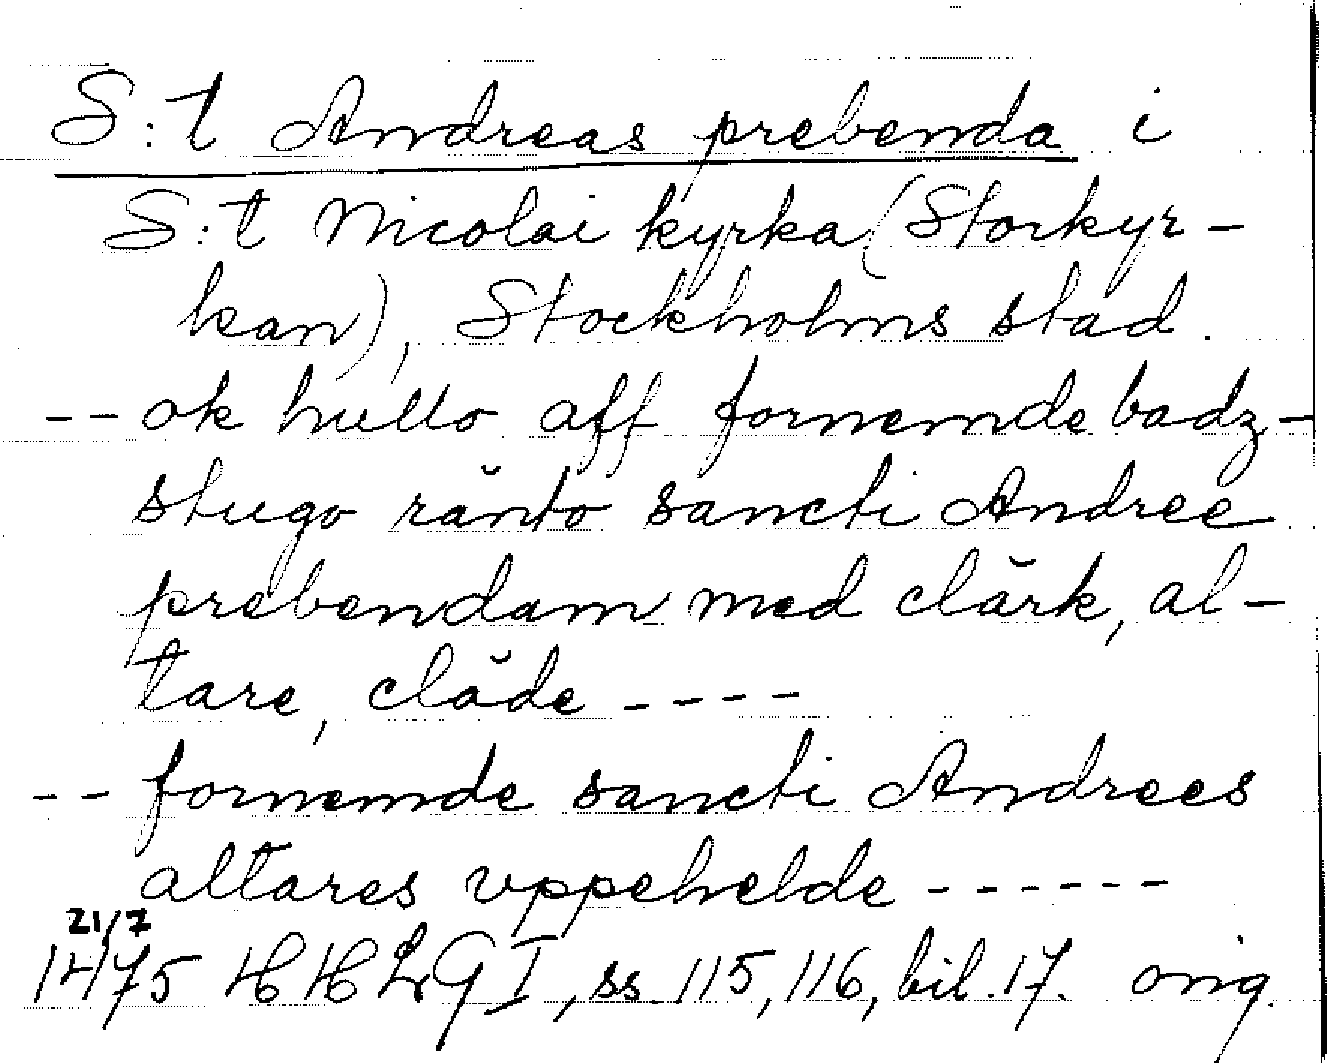 S:t Andreas prebenda i
S:t Nicolai kyrka (Storkyr-
kan), Stockholms stad.
-- ok hullo aff fornemde badz-
stugo ränto sancti Andree
prebendam med clärk, al-
tare, cläde ----
-- fornemde sancti Andrees
altares vppehelde ------
21/7
1475 HHLGI, ss. 115, 116, bil. 17. orig.